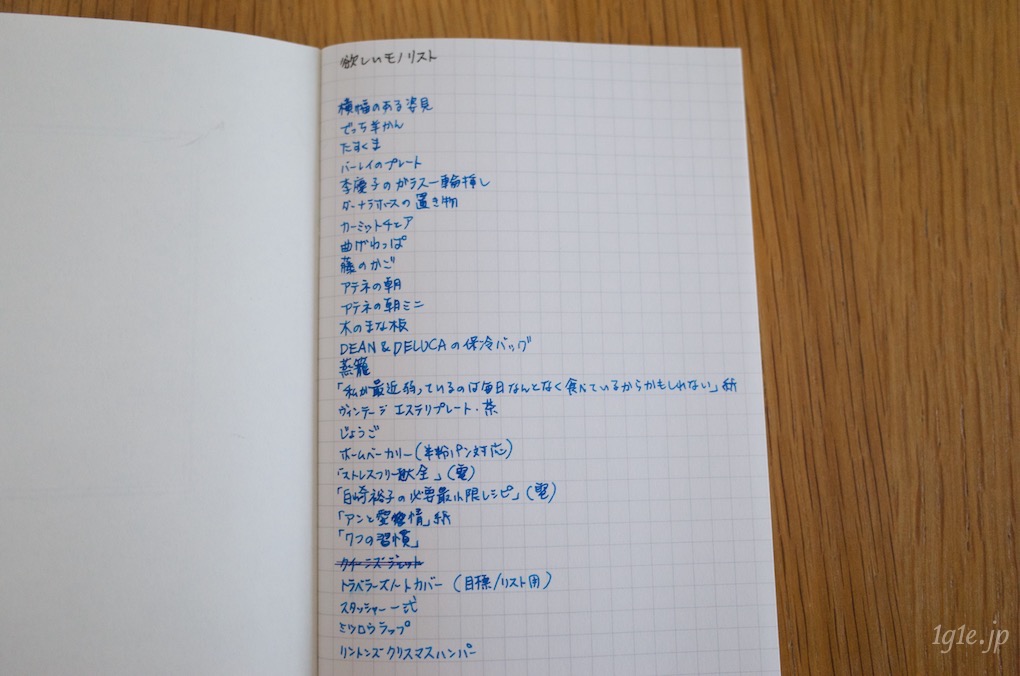 欲しいモノリスト
横幅のある姿見
でっち羊かん
たすくま
バーレイのプレート
李慶子のガラス一輪挿し
ダーナラホースの置き物
カーミットチェア
曲げわっぱ
籐のかご
アテネの朝
アテネの朝ミニ
木のまな板
DEAN & DELUCAの保冷バッグ
蒸籠
「私が最近弱っているのは毎日なんとなく食べているからかもしれない」紙
ヴィンテージ エステリプレート・茶
じょうご
ホームベーカリー(米粉パン対応)
「ストレスフリー大全」(電)
「白崎裕子の必要最小限レシピ」(電)
「アンと愛情」紙
「7つの習慣」
クイーンズデュレット
トラベラーズノートカバー (目標/リスト用)
スタッシャー一式
ミツロウラップ
リントンズクリスマスハンパー
1g1e.jp